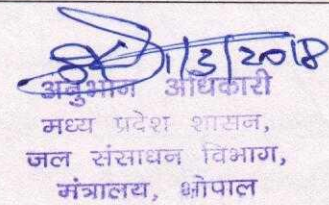 1/3/2018
अनुभाग अधिकारी
मध्य प्रदेश शासन,
जल संसाधन विभाग,
मंत्रालय, भोपाल